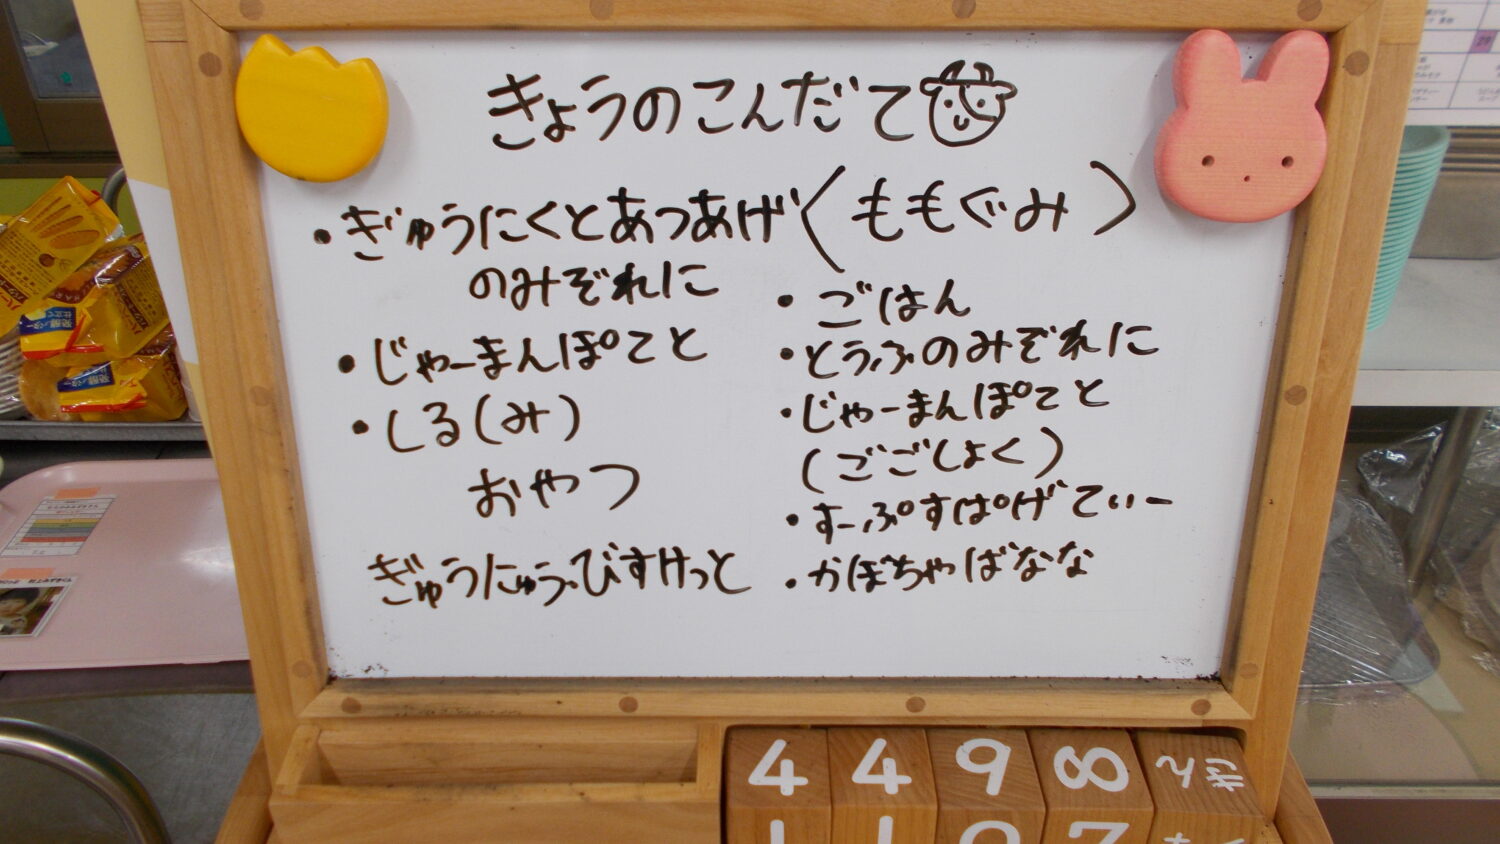 きょうのこんだて
・ぎゅうにくとあつあげ
のみぞれに
・じゃーまんぽてと
・しる(み)
おやつ
ぎゅうにゅう・びすけっと
〈ももぐみ〉
・ごはん
・とうふのみぞれに
・じゃーまんぽてと
(ごごしょく)
・すーぷすぱげてぃー
・かぼちゃばなな
4 4 9 8